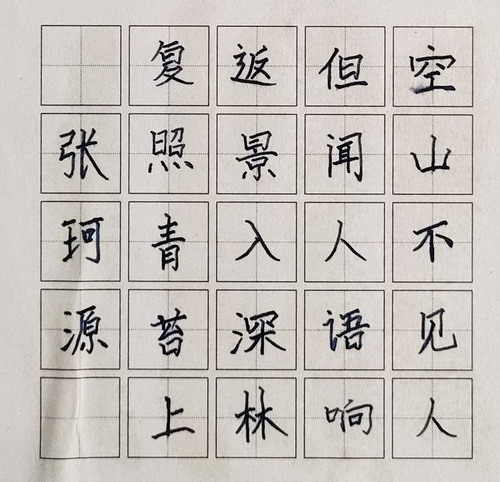 空山不见人
但闻人语响
返景入深林
复照青苔上
张珂源